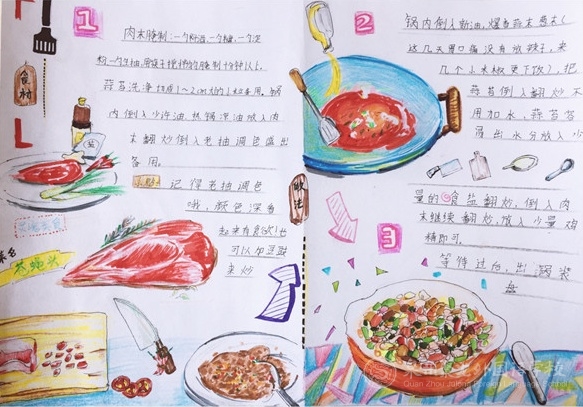 1
肉末腌制:一勺料酒,一勺糖,一勺淀
粉一勺生抽,用筷子搅拌均匀腌制10分钟以上.
蒜苔洗净切成1~2cm的小粒备用,锅
内倒入少许油,热锅凉油放入肉
末翻炒倒入老抽调色盛出
备用。
记得老抽调色
哦,颜色深看
起来有食欲!也
可以加豆豉
来炒
食材
做法
2
锅内倒入新油,爆香蒜末姜末(
这几天胃口痛没有放辣子,来
几个小米椒更下饭),把
蒜苔倒入翻炒不
用加水,蒜苔会
易出水分放入少
量的食盐翻炒,倒入肉
末继续翻炒,放入少量鸡
精即可。
3
等待过后,出锅装
盘
Quan Zhou